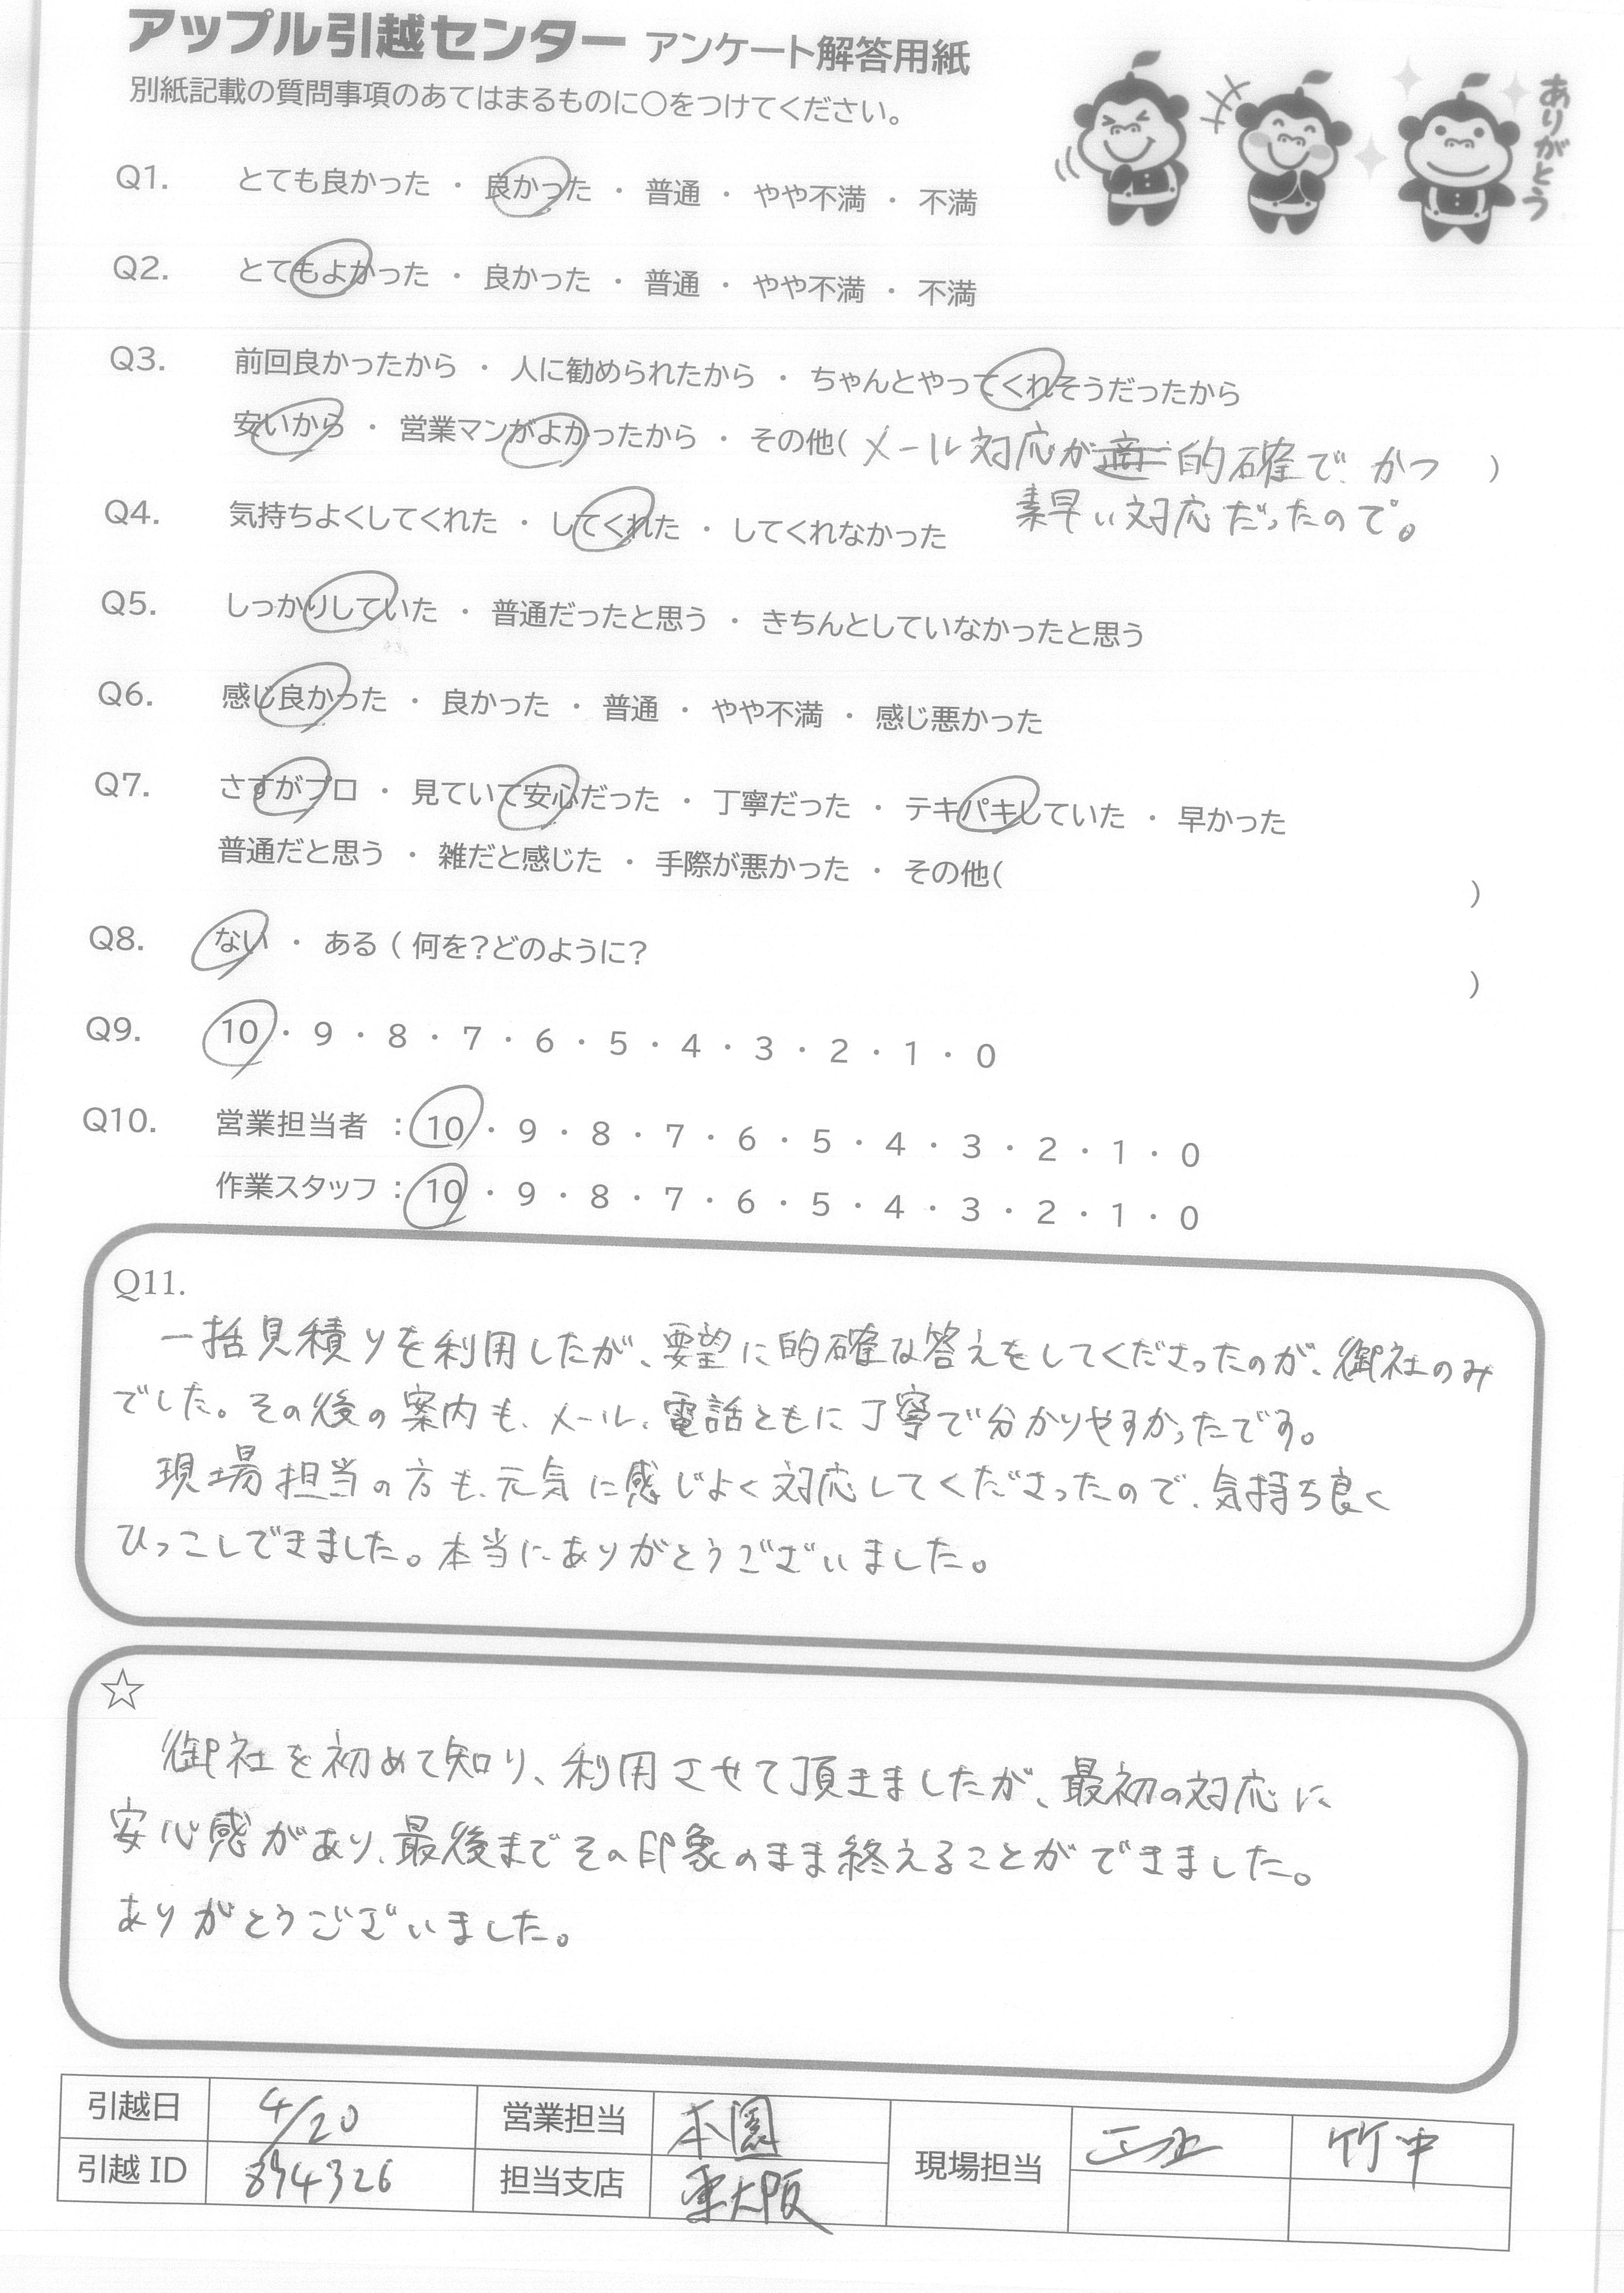 アップル引越センター アンケート解答用紙
別紙記載の質問事項のあてはまるものに〇をつけてください。
ありがとう
Q1. とても良かった ・ 良かった ・ 普通 ・ やや不満 ・ 不満
Q2. とてもよかった ・ 良かった ・ 普通 ・ やや不満 ・ 不満
Q3. 前回良かったから ・ 人に勧められたから ・ ちゃんとやってくれそうだったから
安いから ・ 営業マンがよかったから ・ その他( メール対応が 的確で、かつ )
素早い対応だったので。
Q4. 気持ちよくしてくれた ・ してくれた ・ してくれなかった
Q5. しっかりしていた ・ 普通だったと思う ・ きちんとしていなかったと思う
Q6. 感じ良かった ・ 良かった ・ 普通 ・ やや不満 ・ 感じ悪かった
Q7. さすがプロ ・ 見ていて安心だった ・ 丁寧だった ・ テキパキしていた ・ 早かった
普通だと思う ・ 雑だと感じた ・ 手際が悪かった ・ その他( )
Q8. ない ・ ある ( 何を?どのように? )
Q9. 10 ・ 9 ・ 8 ・ 7 ・ 6 ・ 5 ・ 4 ・ 3 ・ 2 ・ 1 ・ 0
Q10. 営業担当者 : 10 ・ 9 ・ 8 ・ 7 ・ 6 ・ 5 ・ 4 ・ 3 ・ 2 ・ 1 ・ 0
作業スタッフ : 10 ・ 9 ・ 8 ・ 7 ・ 6 ・ 5 ・ 4 ・ 3 ・ 2 ・ 1 ・ 0
Q11.
一括見積りを利用したが、要望に的確な答えをしてくださったのが、御社のみ
でした。その後の案内も、メール、電話ともに丁寧で分かりやすかったです。
現場担当の方も、元気に感じよく対応してくださったので、気持ち良く
ひっこしできました。本当にありがとうございました。
☆
御社を初めて知り、利用させて頂きましたが、最初の対応に
安心感があり、最後までその印象のまま終えることができました。
ありがとうございました。
引越日 4/20 営業担当 本園 現場担当 竹中
引越 ID 894326 担当支店 東大阪